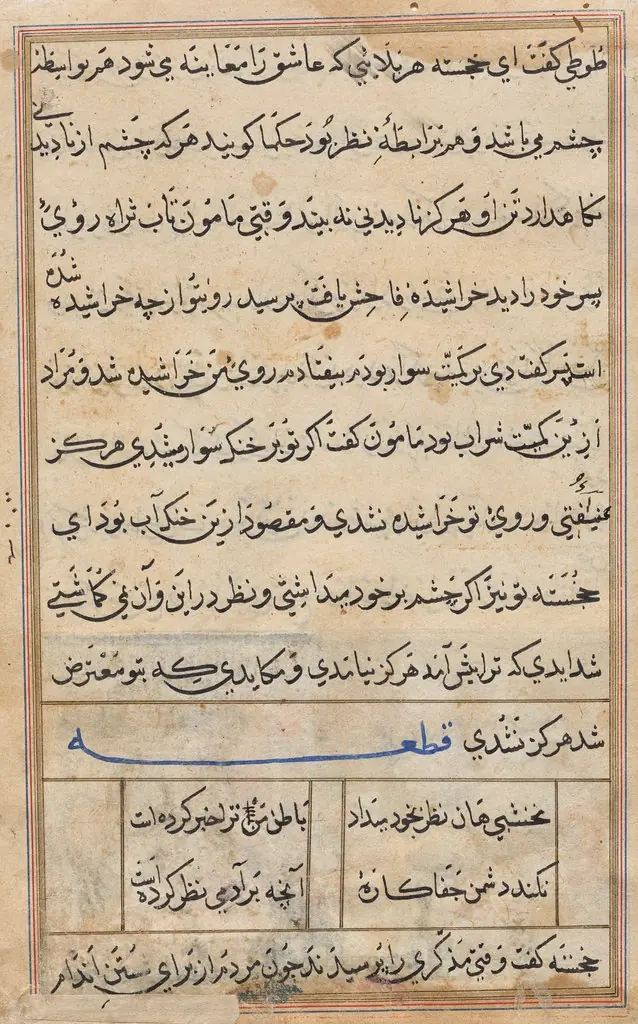 طوطي کفت اي خجسته هر بلائي که عاشق را معاینه مي شود هم بواسطهٔ
چشم مي باشد و هم برابطهٔ نظر بود حکما کویند هر که چشم از نادیدني
نکاهدارد تن او هرکز نادیدني نه بیند وقتي مامون تاب ثراه روئ
پسر خود را دید خراشیده فاحش یافت پرسید روئ تو از چه خراشیده شده
است پسر کفت دي بر کمیت سوار بودم بیفتادم روئ من خراشیده شد و مراد
ازین کمیت شراب بود مامون کفت اکر تو بر خنک سوار میشدي هرکز
نیفتي و روئ تو خراشیده نشدي و مقصود ازین خنک آب بود اي
خجسته تو نیز اکر چشم بر خود میداشتي و نظر در این و آن نمي کماشتي
شدایدي که ترا پیش آمد هرکز نیامدي و مکایدي که بتو معترض
شد هرکز نشدي قطعه
نخشبي هان نظر بخود میداد باطن من ترا خبر کرده است
نکند دشمن جفا کاره آنچه بر آدمي نظر کرده است
خجسته کفت وقتي مذکري را پرسیدند چون مردم از براي شستن اندام